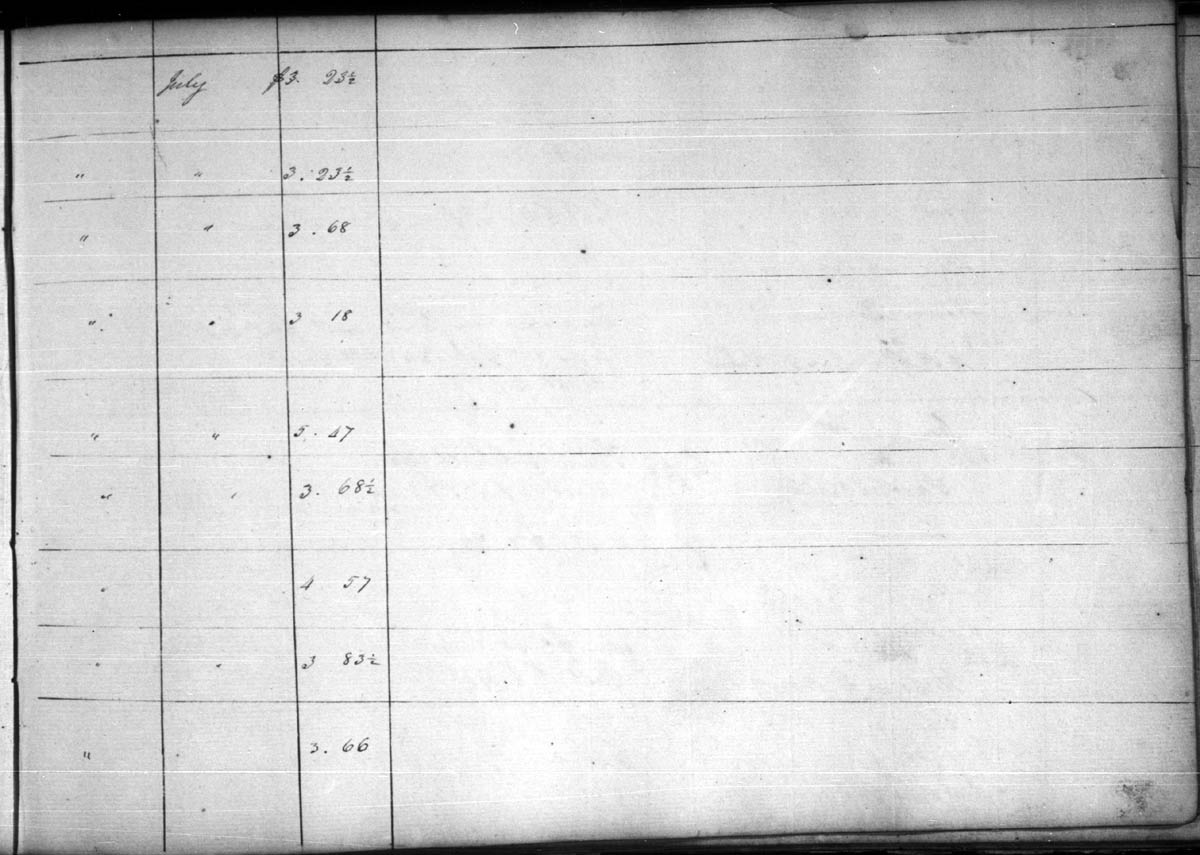 July $3. 23½
" " 3. 23½
" " 3. 68
" " 3 18
" " 5. 47
" " 3. 68½
" 4 57
" " 3 83½
" " 3. 66